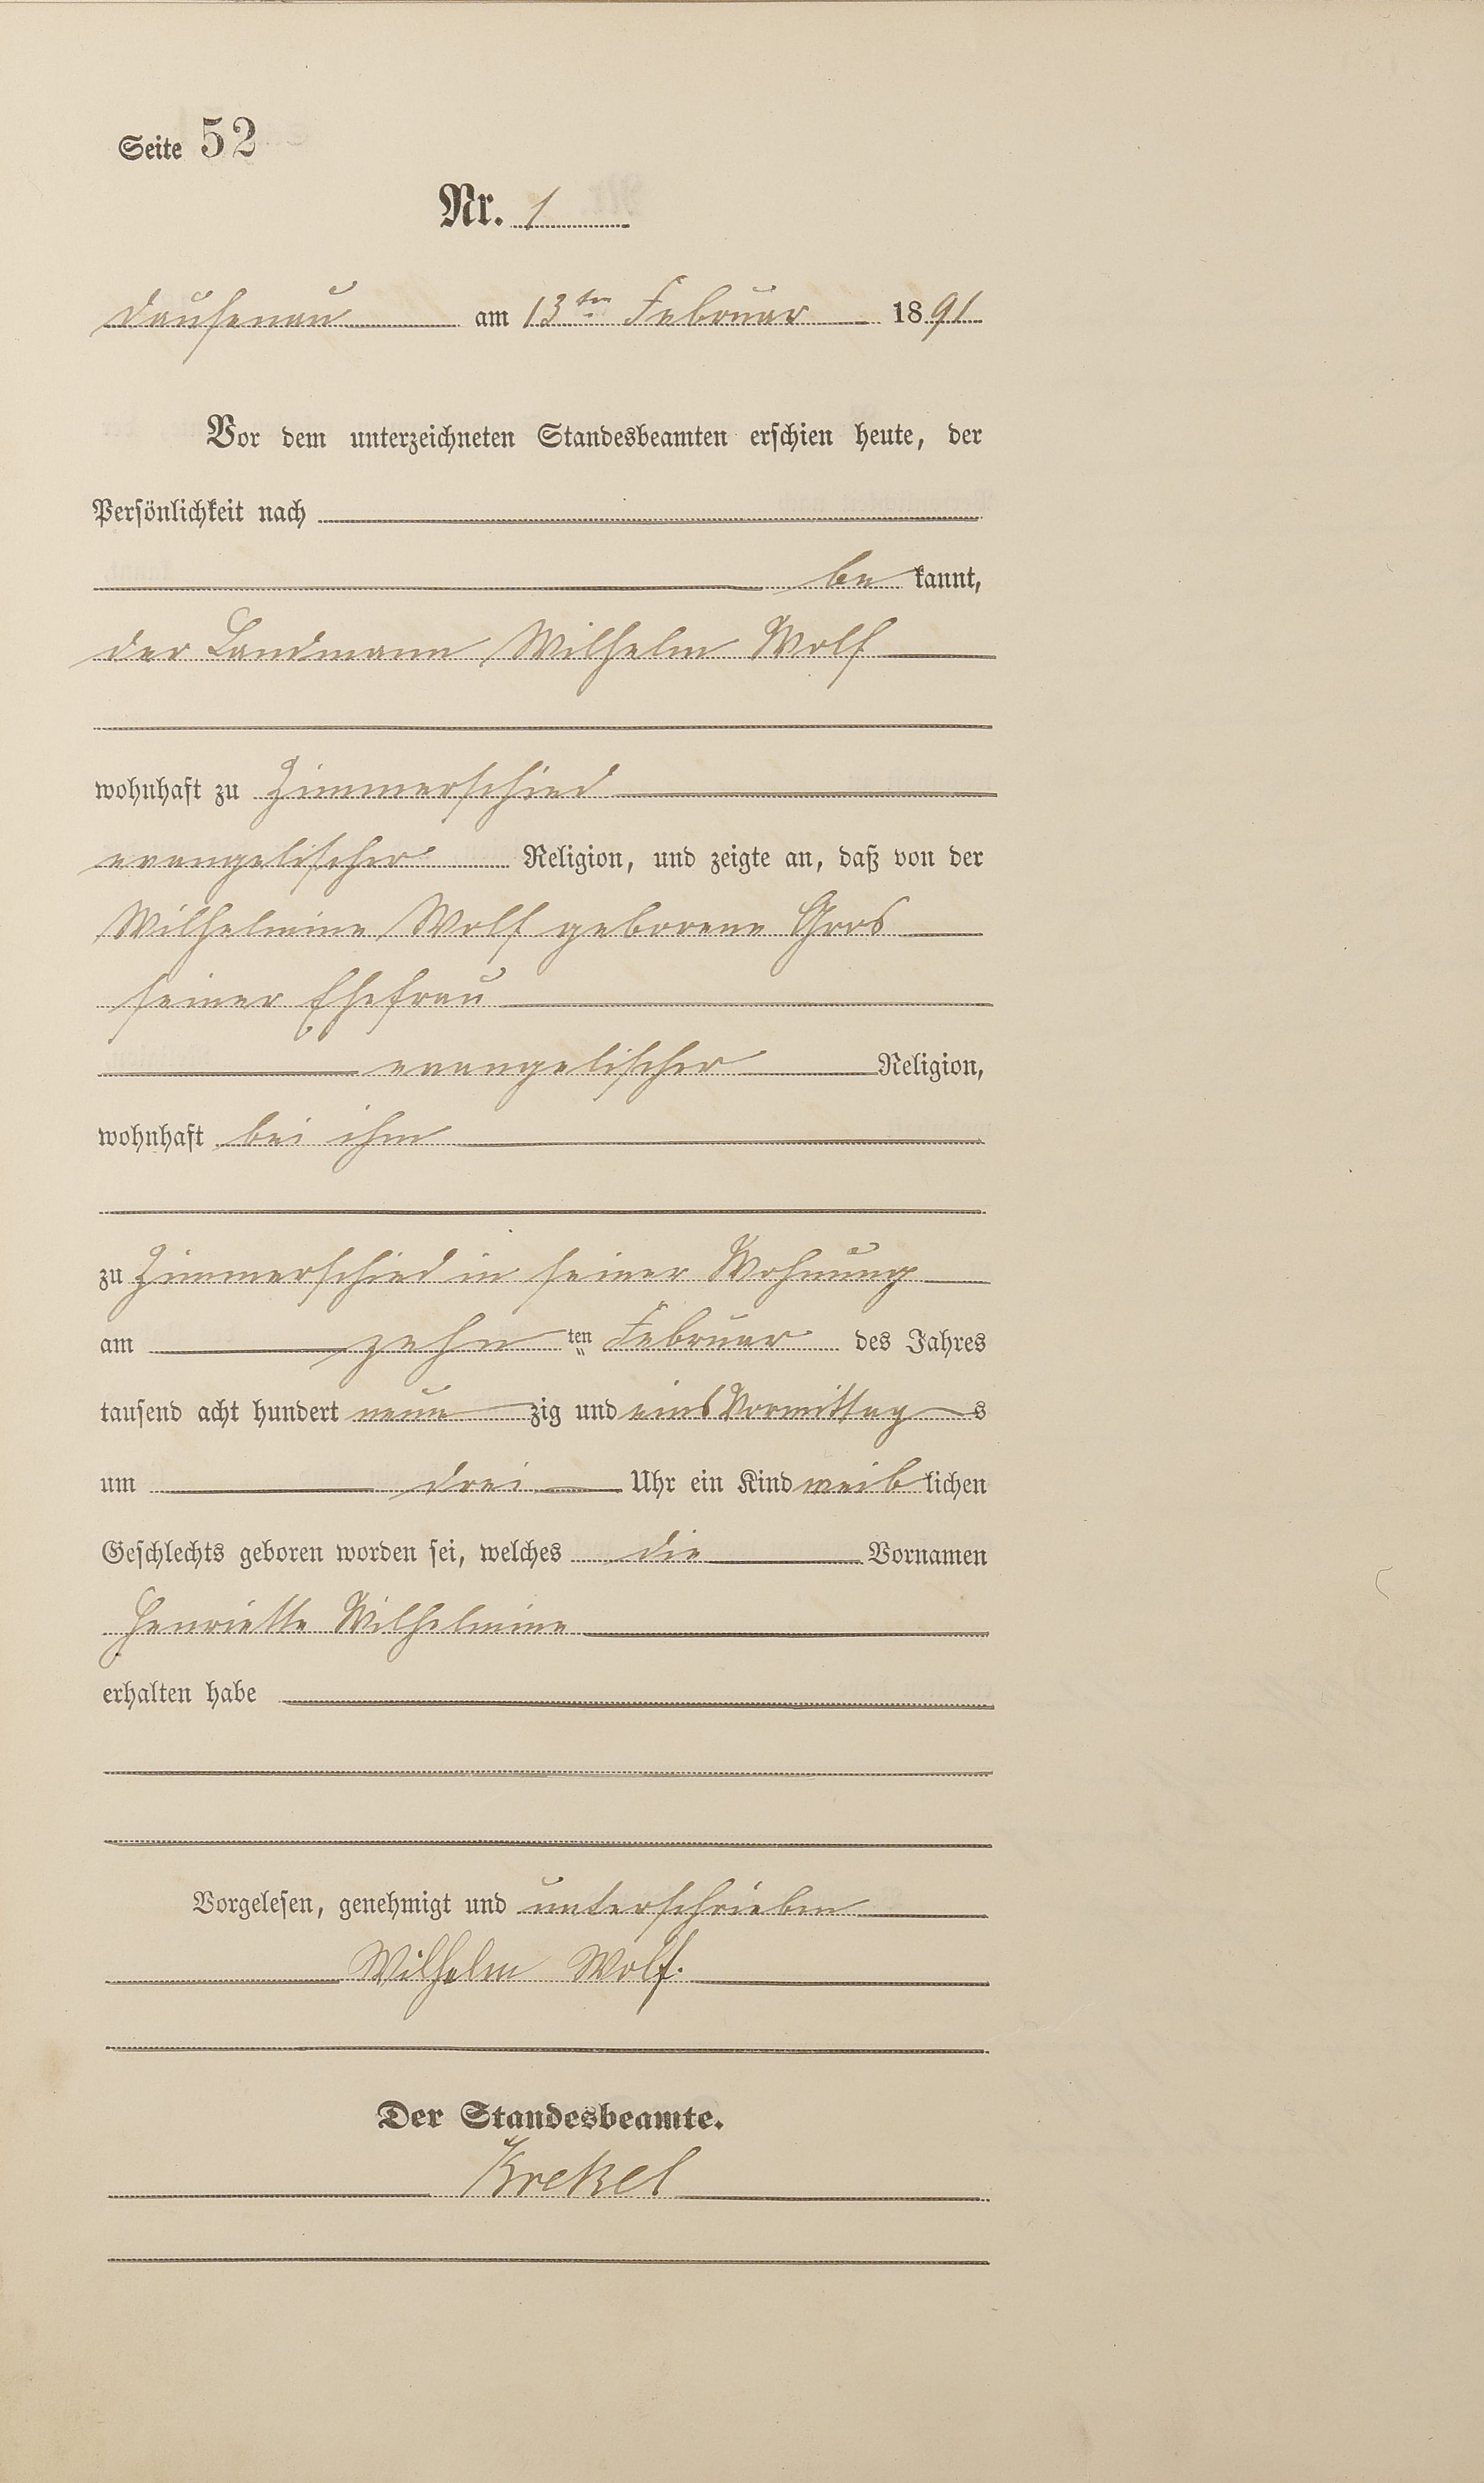 Seite 52
Nr. 1
Dausenau am 13ten Februar 1891
Vor dem unterzeichneten Standesbeamten erschien heute, der
Persönlichkeit nach
be kannt,
der Landmann Wilhelm Wolf
wohnhaft zu Zimmerschied
evangelischer Religion, und zeigte an, daß von der
Wilhelmine Wolf geborene Gros
seiner Ehefrau
evangelischer Religion,
wohnhaft bei ihm
zu Zimmerschied in seiner Wohnung
am zehn ten Februar des Jahres
tausend acht hundert neun zig und eins Vormittag s
um drei Uhr ein Kind weib lichen
Geschlechts geboren worden sei, welches die Vornamen
Henriette Wilhelmine
erhalten habe
Vorgelesen, genehmigt und unterschrieben
Wilhelm Wolf.
Der Standesbeamte.
Krekel